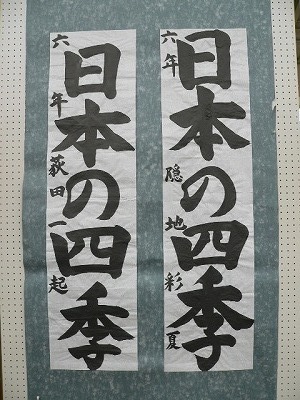 日本の四季
六年 隠地彩夏
日本の四季
六年 荻田一起